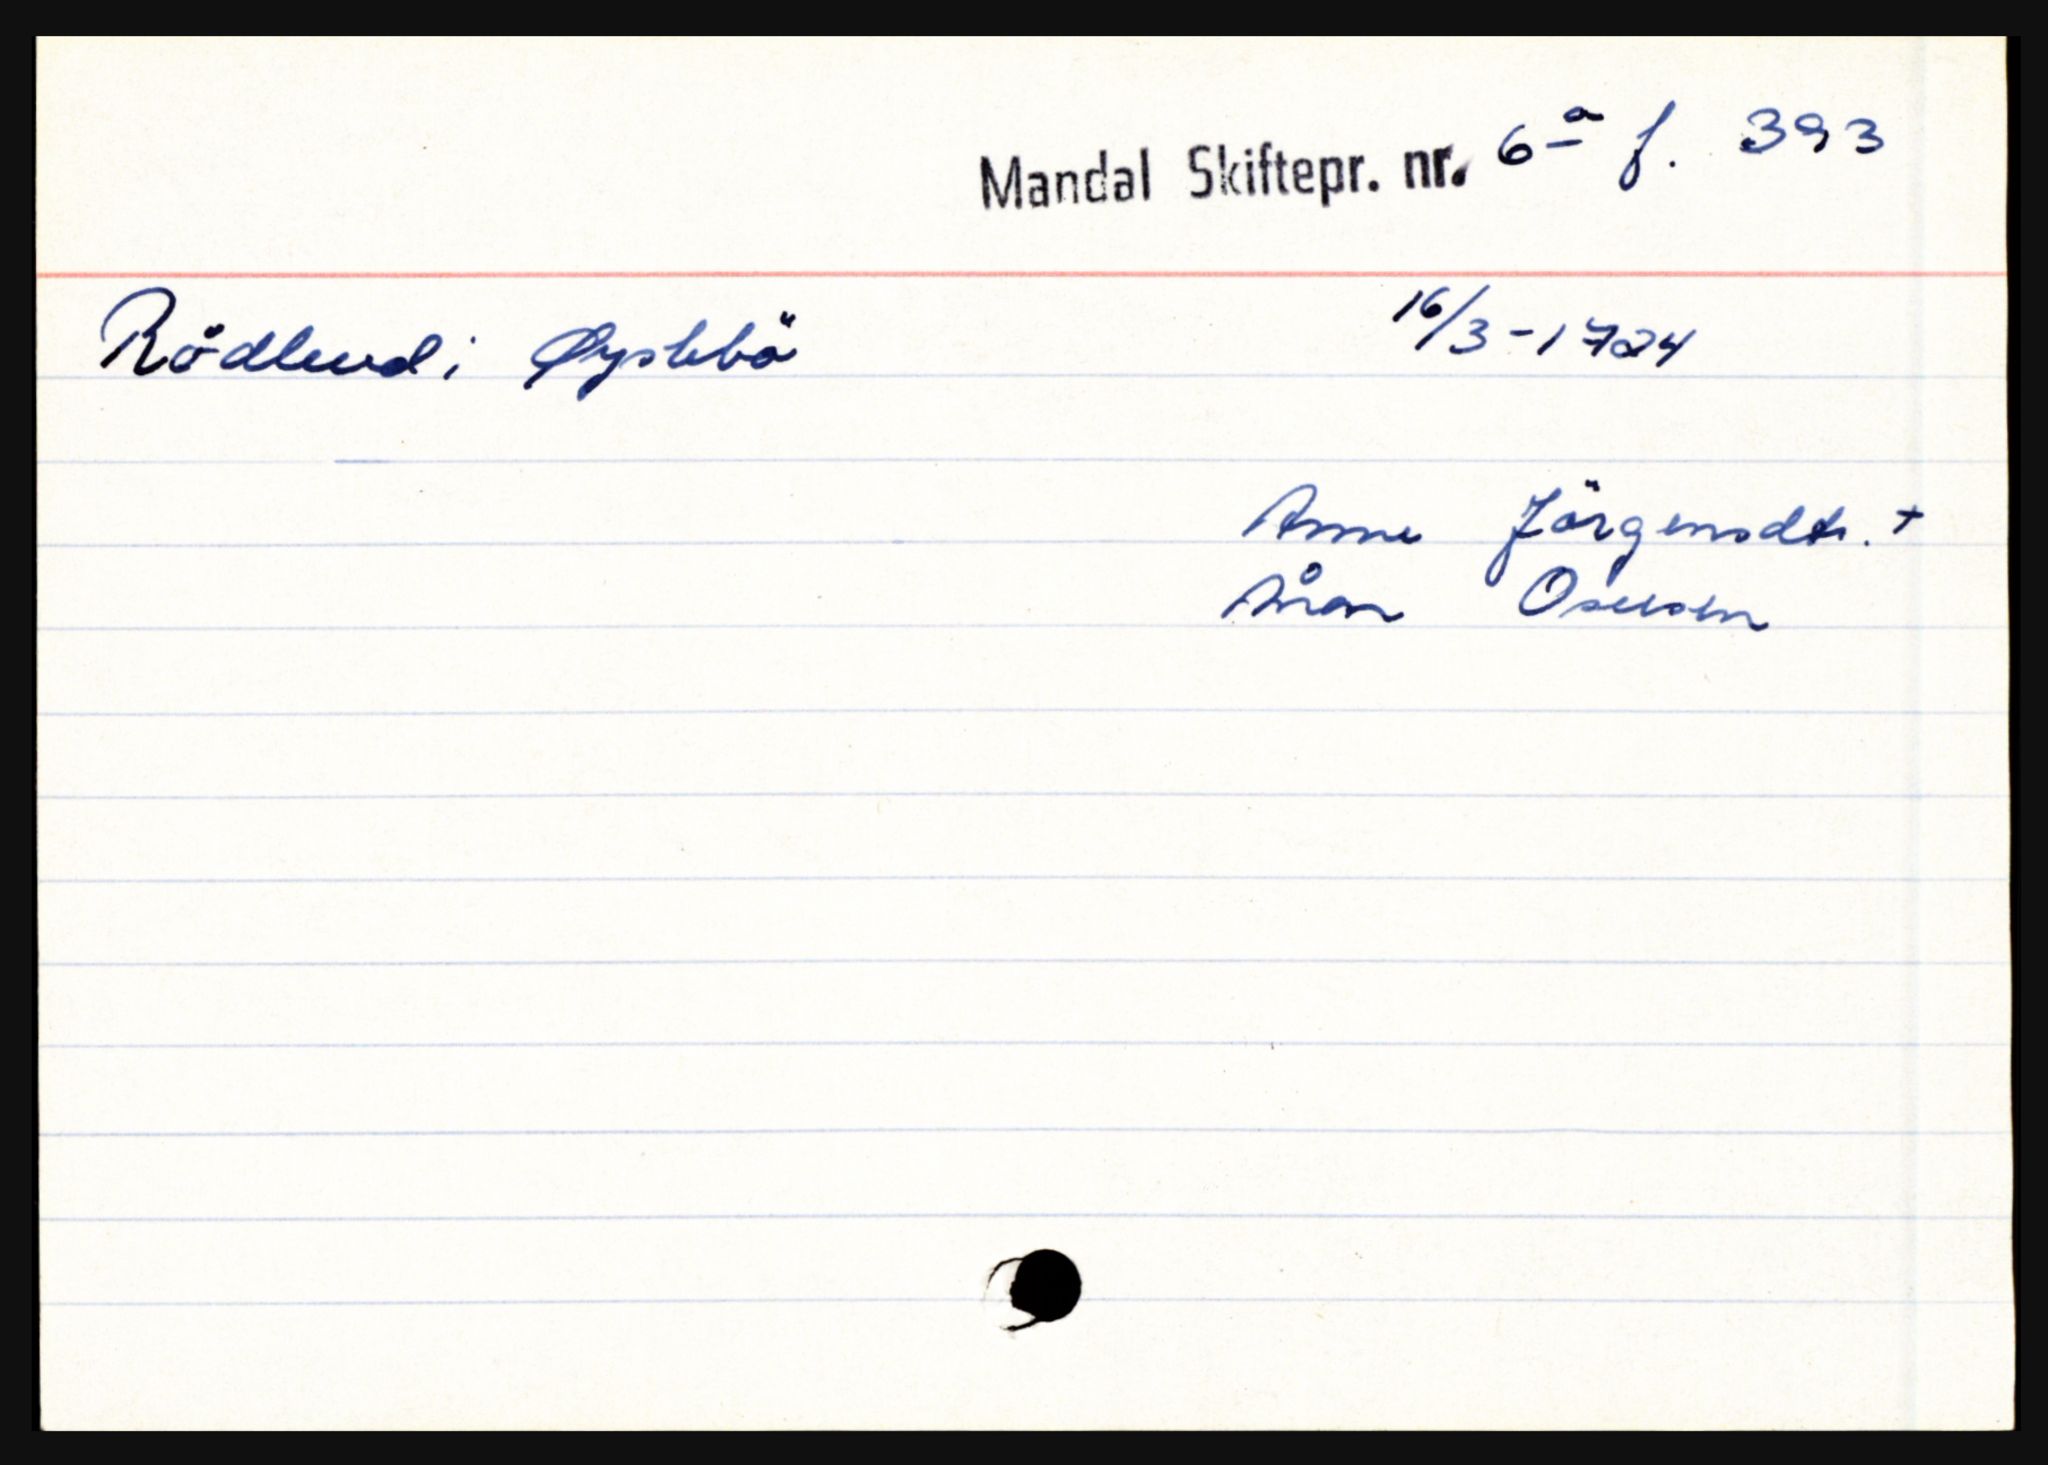 Mandal Skiftepr. nr. 6a f. 393
Rödland i Øyslebö 16/3-1724
Anne Jörgensdtr. +
Ånon Osulsen